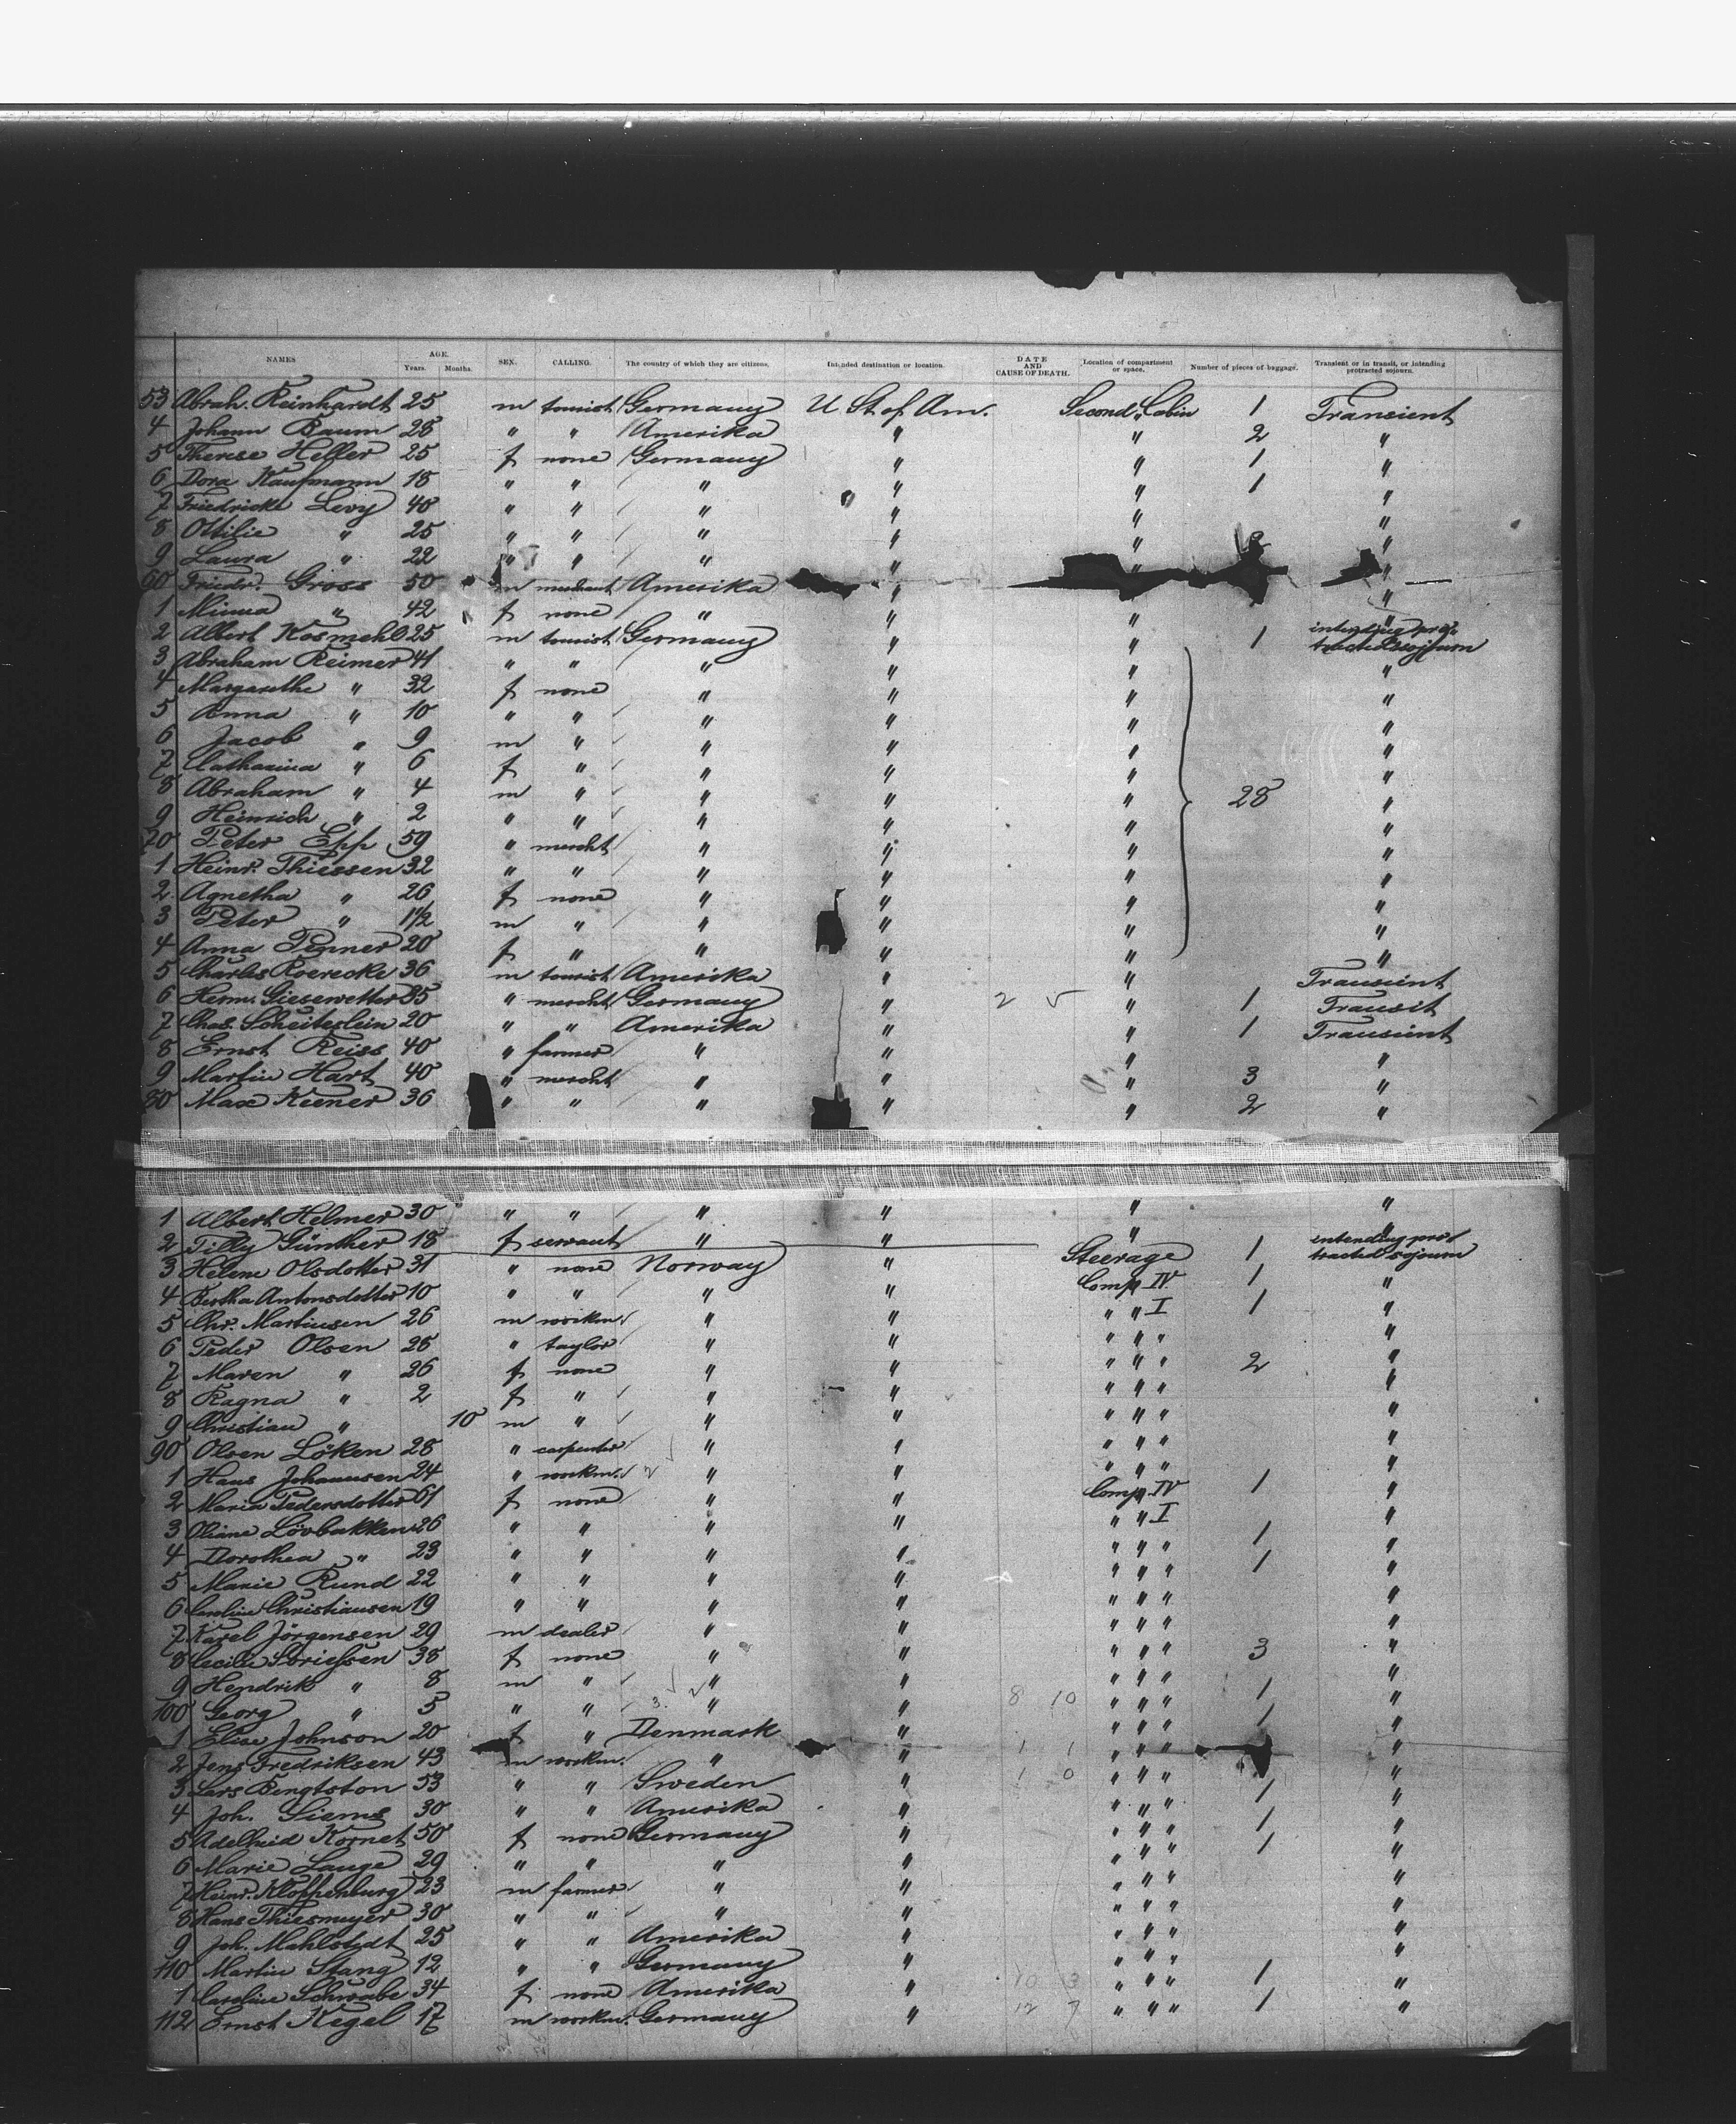 NAMES AGE. Years. Months. SEX. CALLING. The country of which they are citizens. Intended destination or location. DATE AND CAUSE OF DEATH. Location of compartment or space. Number of pieces of baggage. Transient or in transit, or intending protracted sojourn.
53 Abrah. Reinhardt 25 m tourist Germany U. St. of Am. Second Cabin 1 Transient
4 Johann Baum 28 " " Amerika " " 2 "
5 Therese Heller 25 f none Germany " " 1 "
6 Dora Kaufmann 18 " " " " " 1 "
7 Friedricke Levy 48 " " " " " "
8 Ottilie " 25 " " " " " "
9 Laura " 22 " " " " " "
60 Friedr. Gross 50 m merchant Amerika " " "
1 Minna " 42 f none " " " "
2 Albert Kosmehl 25 m tourist Germany " " 1 intending protracted sojourn
3 Abraham Reimer 41 " " " " " "
4 Margarethe " 32 f none " " " "
5 Anna " 10 " " " " " "
6 Jacob " 9 m " " " " "
7 Catharina " 6 f " " " " "
8 Abraham " 4 m " " " " 28 "
9 Heinrich " 2 " " " " " "
70 Peter Epp 59 " mercht " " " "
1 Heinr. Thiessen 32 " " " " " "
2 Agnetha " 26 f none " " " "
3 Peter " 1½ m " " " " "
4 Anna Penner 20 f " " " " "
5 Charles Roerecke 36 m tourist Amerika " " Transient
6 Herm. Giesewetter 35 " mercht Germany " 2 " 1 Transit
7 Chas. Scheiterlein 20 " " Amerika " " 1 Transient
8 Ernst Reiss 40 " farmer " " " "
9 Martin Hart 40 " mercht " " " 3 "
80 Max Keener 36 " " " " " 2 "
1 Albert Helmer 30 " " " " " "
2 Tilly Günther 18 f servant " " " 1 intending protracted sojourn
3 Helene Olsdotter 31 " none Norway " Steerage Comp IV 1 "
4 Bertha Antonsdotter 10 " " " " " " I 1 "
5 Chr. Martinsen 26 m workm. " " " " " "
6 Peder Olsen 28 " taylor " " " " " 2 "
7 Maren " 26 f none " " " " " "
8 Ragna " 2 f " " " " " " "
9 Christian " 10 m " " " " " "
90 Olsen Löken 28 " carpenter " " " " "
1 Hans Johannsen 24 " workm. " " Comp IV 1 "
2 Maria Pedersdotter 61 f none " " " " I "
3 Oliane Lövbakken 26 " " " " " " " 1 "
4 Dorothea " 23 " " " " " " " 1 "
5 Marie Rund 22 " " " " " " " "
6 Caroline Christiansen 19 " " " " " " " "
7 Karel Jörgensen 29 m dealer " " " " " "
8 Cecilie 38 f none " " " " " 3 "
9 Hendrik " 8 m " " " " " " "
100 Georg " 5 " " " " 8 10 " " " 1 "
1 Elise Johnson 20 f " Denmark " " " " 1 "
2 Jens Fredriksen 43 m workm. " " 1 1 " " " "
3 Lars Bengtston 53 " " Sweden " 1 0 " " " 1 "
4 Joh. Siems 30 " " Amerika " " " " 1 "
5 Adelheid Kornet 50 f none Germany " " " " 1 "
6 Marie Lange 29 " " " " " " " "
7 Heinr. Kloppenburg 23 m farmer " " " " " "
8 Hans Thiesmeyer 30 " " " " " " " "
9 Joh. Mahlstedt 25 " " Amerika " " " " "
110 Martin Stang 12 " " Germany " " " " 1
1 Caroline Schwabe 34 f none Amerika " 10 3 " " " 1 "
112 Ernst Kegel 17 m workm. Germany " 12 7 " " " "